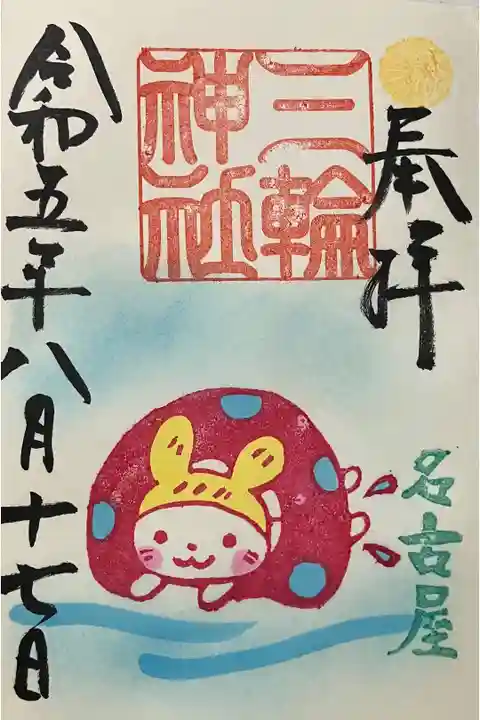 奉拝
名古屋
三輪
神社
令和五年八月十七日